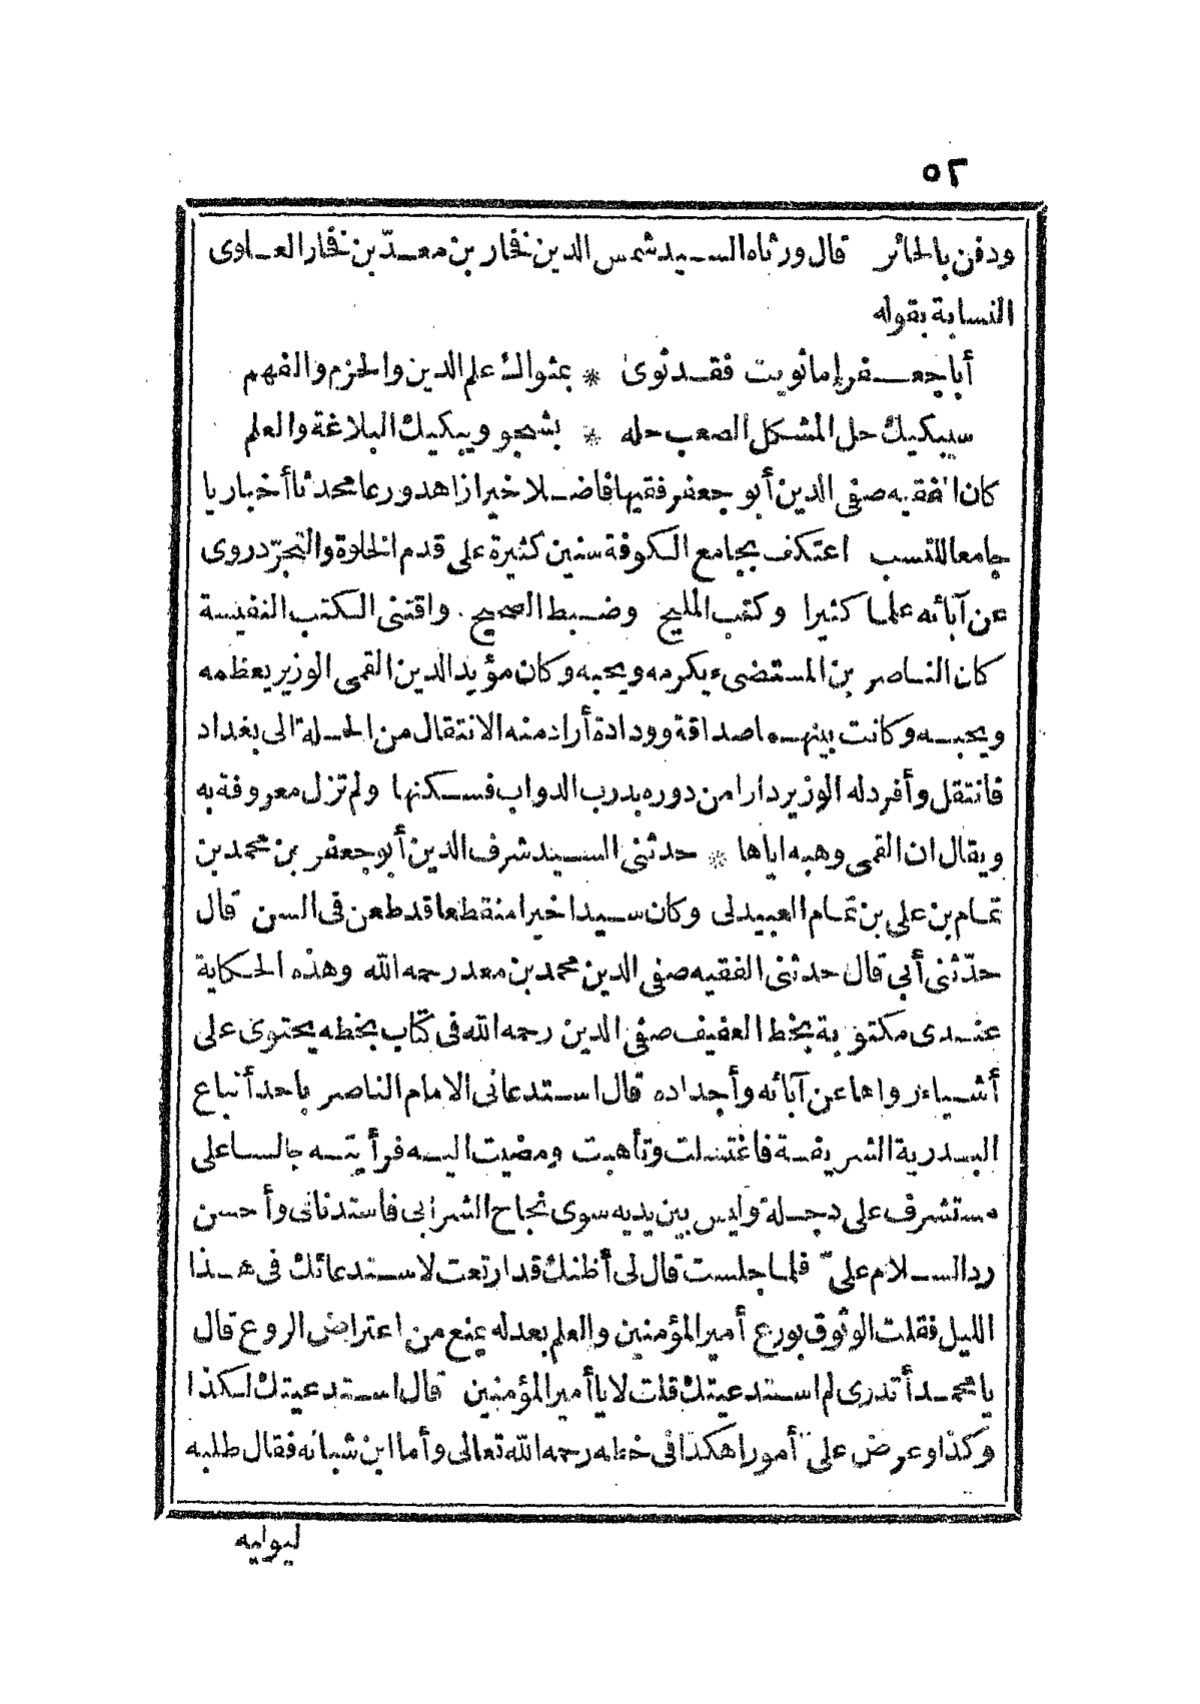 ٥٢
ودفن بالحائر قال ورثاه السيد شمس الدين فخار بن معدّ بن فخار العلوى
النسابة بقوله
أبا جعفر إما ثويت فقد ثوى * بمثواك علم الدين والحزم والفهم
سيبكيك حل المشكل الصعب حله * بشجو ويبكيك البلاغة والعلم
كان الفقيه صفى الدين أبو جعفر فقيها فاضلا خيرا زاهدا ورعا محدثا أخباريا
جامعا للنسب اعتكف بجامع الكوفة سنين كثيرة على قدم الخلوة والتجرّد روى
عن آبائه علما كثيرا وكتب المليح وضبط الصحيح . واقتنى الكتب النفيسة
كان الناصر بن المستضىء يكرمه ويحبه وكان مؤيد الدين القمى الوزير يعظمه
ويحبه وكانت بينهما صداقة وودادة أراد منه الانتقال من الحلة الى بغداد
فانتقل وأفرد له الوزير دارا من دوره بدرب الدواب فسكنها ولم تزل معروفة به
ويقال ان القمى وهبه اياها * حدثنى السيد شرف الدين أبو جعفر بن محمد بن
تمام بن على بن تمام العبيدلى وكان سيدا خيرا منقطعا قد طعن فى السن قال
حدّثنى أبى قال حدثنى الفقيه صفى الدين محمد بن معد رحمه الله وهذه الحكاية
عندى مكتوبة بخط العفيف صفى الدين رحمه الله فى كتاب بخطه يحتوى على
أشياء رواها عن آبائه وأجداده قال استدعانى الامام الناصر باحد أتباع
البدرية الشريفة فاغتسلت وتأهبت ومضيت اليه فرأيته جالسا على
مستشرف على دجلة وليس بين يديه سوى نجاح الشرابى فاستدنانى وأحسن
رد السلام علىّ فلما جلست قال لى أظنك قد ارتعت لاستدعائك فى هذا
الليل فقلت الوثوق بورع أمير المؤمنين والعلم بعدله يمنع من اعتراض الروع قال
يا محمد أتدرى لم استدعيتك قلت لا يا أمير المؤمنين قال استدعيتك لكذا
وكذا وعرض علىّ أمورا هكذا فى خطه رحمه الله تعالى وأما ابن شبانه فقال طلبه
ليوليه